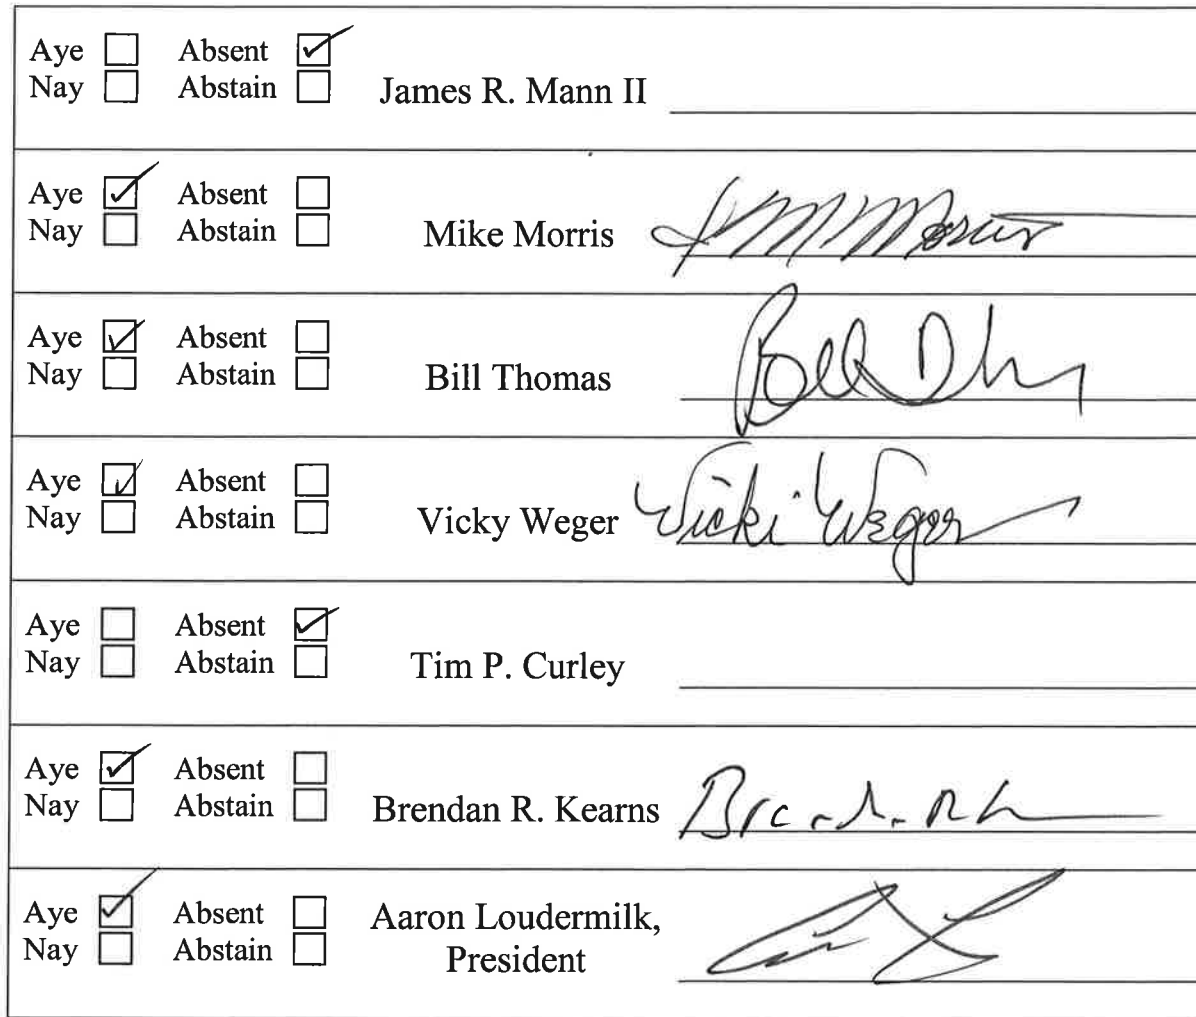 Aye ☐ Absent ☑
Nay ☐ Abstain ☐ James R. Mann II
Aye ☑ Absent ☐
Nay ☐ Abstain ☐ Mike Morris
Aye ☑ Absent ☐
Nay ☐ Abstain ☐ Bill Thomas
Aye ☑ Absent ☐
Nay ☐ Abstain ☐ Vicky Weger Vicki Weger
Aye ☐ Absent ☑
Nay ☐ Abstain ☐ Tim P. Curley
Aye ☑ Absent ☐
Nay ☐ Abstain ☐ Brendan R. Kearns
Aye ☑ Absent ☐ Aaron Loudermilk,
Nay ☐ Abstain ☐ President